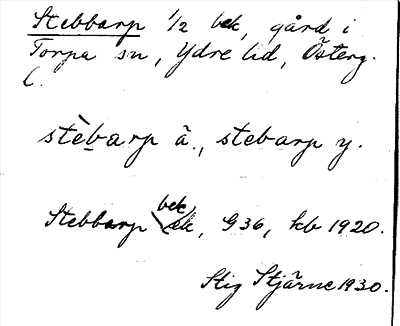 Stebbarp 1/2 bek, gård i
Torpa sn, Ydre hd, Österg.
l.
stèbarp ä., stebarp y.
Stebbarp bek, G36, kb 1920.
Stig Stjärne 1930.